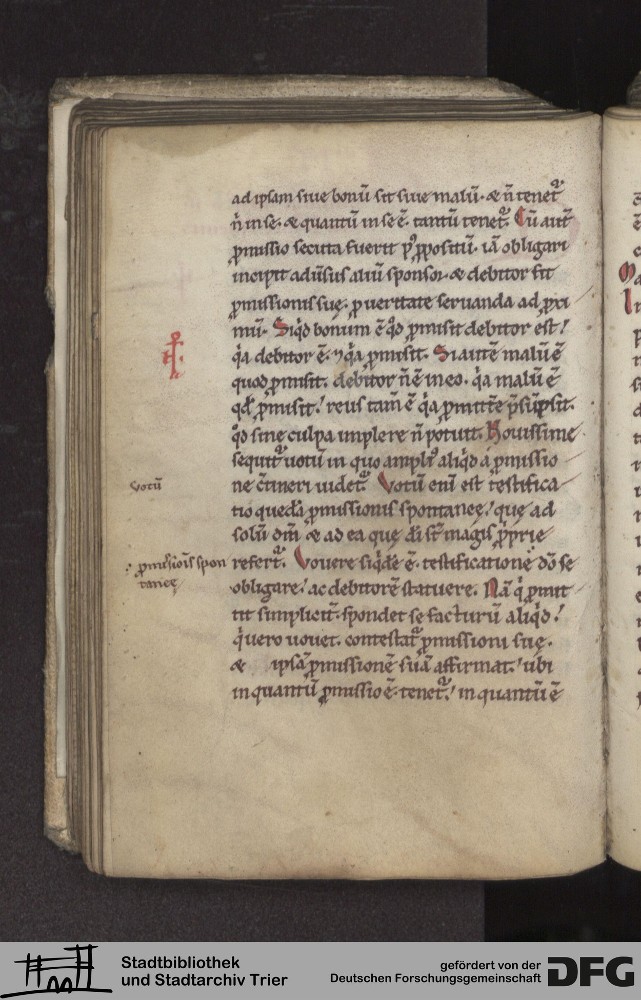 ad ipsam siue bonū sit siue malū. & n̄ tenet᷑
n̄ in se. & quantū in se ē. tantū tenet᷑. Cū aut̄
ꝓmissio secuta fuerit p᷒ ꝓpositū. iā obligari
incipit aduersus aliū sponsor & debitor sit
ꝓmissionis suę. ꝓ ueritate seruanda ad pxi
mū. Siqͥd bonum ē qͦd ꝓmisit debitor est!
qͣa debitor ē. ⁊ qͣa ꝓmisit. Si autē malū ē
quod ꝓmisit. debitor n̄ ē in eo. qͣa malū ē
qd̄ ꝓmisit! reus tam̄ ē qͣa ꝓmitt̄e p̄sūpsit.
qͦd sine culpa implere n̄ potuit. Nouissime
sequit᷑ uotū in quo ampli᷒ aliqͥd a ꝓmissio
ne c̄tineri uidet᷑. Votū eni est testifica
tio quedā ꝓmissionis spontaneę! quę ad
solū dm̄ & ad ea que di st̄ magis ꝓprie
refert᷑. Vouere siqͥdē ē. testificationē dō se
obligare! ac debitorē statuere. Nā qͥ ꝓmit
tit simplicit̄. spondet se facturū aliqͥd!
qͥ uero uouet. contestat᷑ ꝓmissioni suę.
& ipsā ꝓmissionē suā affirmat! ubi
in quantū ꝓmissio ē. tenet᷑! in quantū ē
votū
ꝓmissiōis spon
taneę
Stadtbibliothek
und Stadtarchiv Trier
gefördert von der
Deutschen Forschungsgemeinschaft
DFG